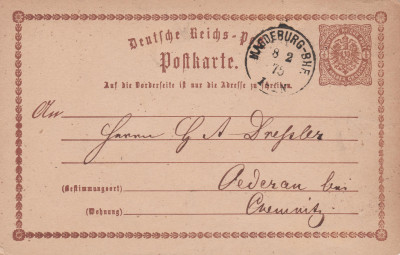 Deutsche Reichs-Post
Postkarte.
MAGDEBURG-BHF.
8 2
75
Auf die Vorderseite ist nur die Adresse zu schreiben.
An
Herrn G A Dressler
(Bestimmungsort) Oederan bei
(Wohnung) Chemnitz